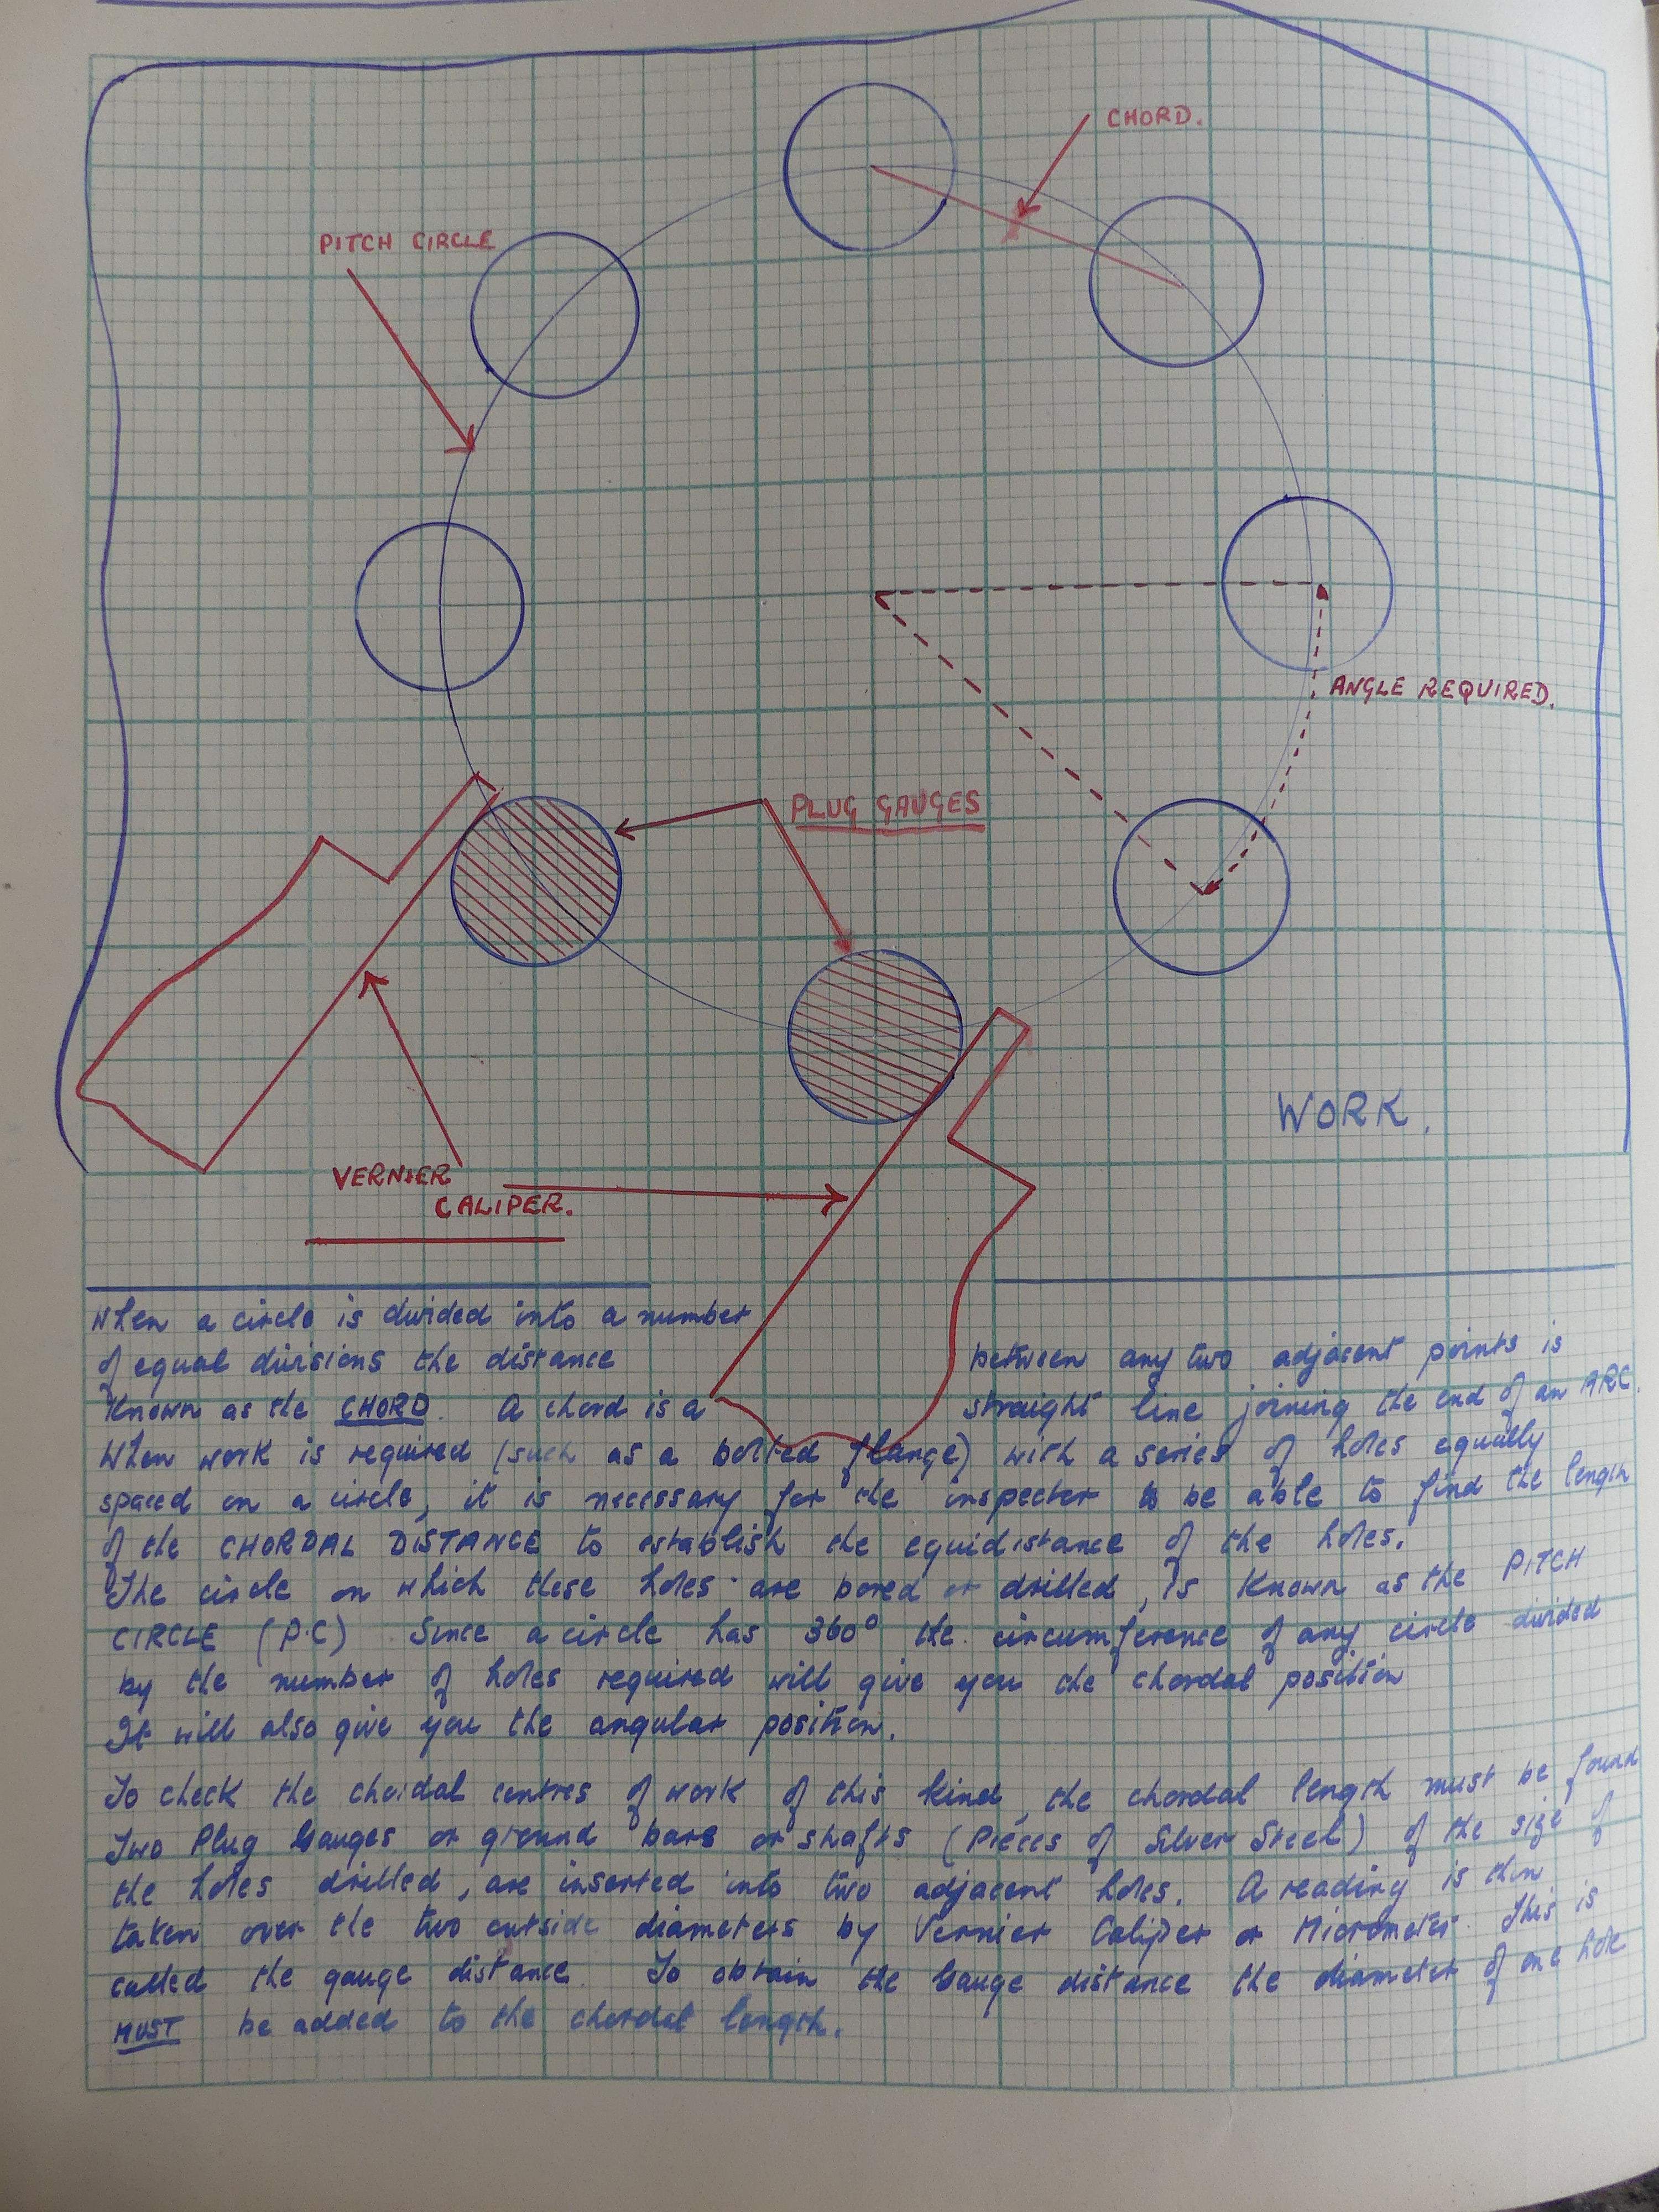 CHORD.
PITCH CIRCLE
ANGLE REQUIRED.
PLUG GAUGES
WORK.
VERNIER
CALIPER.
When a circle is divided into a number
of equal divisions the distance between any two adjacent points is
Known as the CHORD. A chord is a straight line joining the end of an ARC.
When work is required (such as a bolted flange) with a series of holes equally
spaced on a circle, it is necessary for the inspector to be able to find the length
of the CHORDAL DISTANCE to establish the equidistance of the holes.
The circle on which these holes are bored or drilled, is Known as the PITCH
CIRCLE (P.C) Since a circle has 360° the circumference of any circle divided
by the number of holes required will give you the chordal position
It will also give you the angular position.
To check the chordal centres of work of this kind, the chordal length must be found
Two Plug Gauges or ground bars or shafts (Pieces of Silver Steel) of the size of
the holes drilled, are inserted into two adjacent holes. A reading is then
taken over the two outside diameters by Vernier Caliper or Micrometer. This is
called the gauge distance. To obtain the Gauge distance the diameter of one hole
MUST be added to the chordal length.